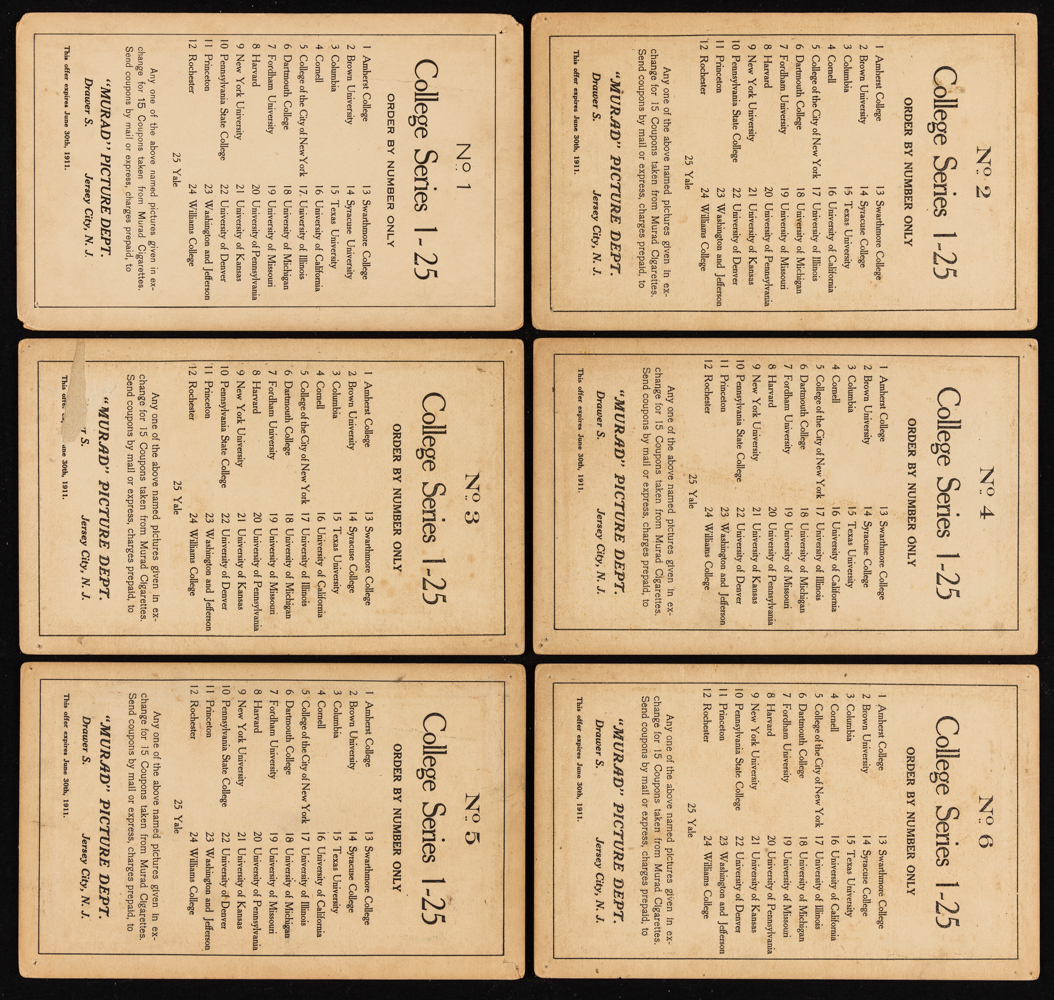 Nº 1
College Series 1-25
ORDER BY NUMBER ONLY
1 Amherst College 13 Swarthmore College
2 Brown University 14 Syracuse University
3 Columbia 15 Texas University
4 Cornell 16 University of California
5 College of the City of New York 17 University of Illinois
6 Dartmouth College 18 University of Michigan
7 Fordham University 19 University of Missouri
8 Harvard 20 University of Pennsylvania
9 New York University 21 University of Kansas
10 Pennsylvania State College 22 University of Denver
11 Princeton 23 Washington and Jefferson
12 Rochester 24 Williams College
25 Yale
Any one of the above named pictures given in ex-
change for 15 Coupons taken from Murad Cigarettes.
Send coupons by mail or express, charges prepaid, to
"MURAD" PICTURE DEPT.
Drawer S. Jersey City, N. J.
This offer expires June 30th, 1911.
Nº 2
College Series 1-25
ORDER BY NUMBER ONLY
1 Amherst College 13 Swarthmore College
2 Brown University 14 Syracuse College
3 Columbia 15 Texas University
4 Cornell 16 University of California
5 College of the City of New York 17 University of Illinois
6 Dartmouth College 18 University of Michigan
7 Fordham University 19 University of Missouri
8 Harvard 20 University of Pennsylvania
9 New York University 21 University of Kansas
10 Pennsylvania State College 22 University of Denver
11 Princeton 23 Washington and Jefferson
12 Rochester 24 Williams College
25 Yale
Any one of the above named pictures given in ex-
change for 15 Coupons taken from Murad Cigarettes.
Send coupons by mail or express, charges prepaid, to
"MURAD" PICTURE DEPT.
Drawer S. Jersey City, N. J.
This offer expires June 30th, 1911.
Nº 3
College Series 1-25
ORDER BY NUMBER ONLY
1 Amherst College 13 Swarthmore College
2 Brown University 14 Syracuse College
3 Columbia 15 Texas University
4 Cornell 16 University of California
5 College of the City of New York 17 University of Illinois
6 Dartmouth College 18 University of Michigan
7 Fordham University 19 University of Missouri
8 Harvard 20 University of Pennsylvania
9 New York University 21 University of Kansas
10 Pennsylvania State College 22 University of Denver
11 Princeton 23 Washington and Jefferson
12 Rochester 24 Williams College
25 Yale
Any one of the above named pictures given in ex-
change for 15 Coupons taken from Murad Cigarettes.
Send coupons by mail or express, charges prepaid, to
"MURAD" PICTURE DEPT.
S. Jersey City, N. J.
This 30th, 1911.
Nº 4
College Series 1-25
ORDER BY NUMBER ONLY
1 Amherst College 13 Swarthmore College
2 Brown University 14 Syracuse College
3 Columbia 15 Texas University
4 Cornell 16 University of California
5 College of the City of New York 17 University of Illinois
6 Dartmouth College 18 University of Michigan
7 Fordham University 19 University of Missouri
8 Harvard 20 University of Pennsylvania
9 New York University 21 University of Kansas
10 Pennsylvania State College 22 University of Denver
11 Princeton 23 Washington and Jefferson
12 Rochester 24 Williams College
25 Yale
Any one of the above named pictures given in ex-
change for 15 Coupons taken from Murad Cigarettes.
Send coupons by mail or express, charges prepaid, to
"MURAD" PICTURE DEPT.
Drawer S. Jersey City, N. J.
This offer expires June 30th, 1911.
Nº 5
College Series 1-25
ORDER BY NUMBER ONLY
1 Amherst College 13 Swarthmore College
2 Brown University 14 Syracuse College
3 Columbia 15 Texas University
4 Cornell 16 University of California
5 College of the City of New York 17 University of Illinois
6 Dartmouth College 18 University of Michigan
7 Fordham University 19 University of Missouri
8 Harvard 20 University of Pennsylvania
9 New York University 21 University of Kansas
10 Pennsylvania State College 22 University of Denver
11 Princeton 23 Washington and Jefferson
12 Rochester 24 Williams College
25 Yale
Any one of the above named pictures given in ex-
change for 15 Coupons taken from Murad Cigarettes.
Send coupons by mail or express, charges prepaid, to
"MURAD" PICTURE DEPT.
Drawer S. Jersey City, N. J.
This offer expires June 30th, 1911.
Nº 6
College Series 1-25
ORDER BY NUMBER ONLY
1 Amherst College 13 Swarthmore College
2 Brown University 14 Syracuse College
3 Columbia 15 Texas University
4 Cornell 16 University of California
5 College of the City of New York 17 University of Illinois
6 Dartmouth College 18 University of Michigan
7 Fordham University 19 University of Missouri
8 Harvard 20 University of Pennsylvania
9 New York University 21 University of Kansas
10 Pennsylvania State College 22 University of Denver
11 Princeton 23 Washington and Jefferson
12 Rochester 24 Williams College
25 Yale
Any one of the above named pictures given in ex-
change for 15 Coupons taken from Murad Cigarettes.
Send coupons by mail or express, charges prepaid, to
"MURAD" PICTURE DEPT.
Drawer S. Jersey City, N. J.
This offer expires June 30th, 1911.